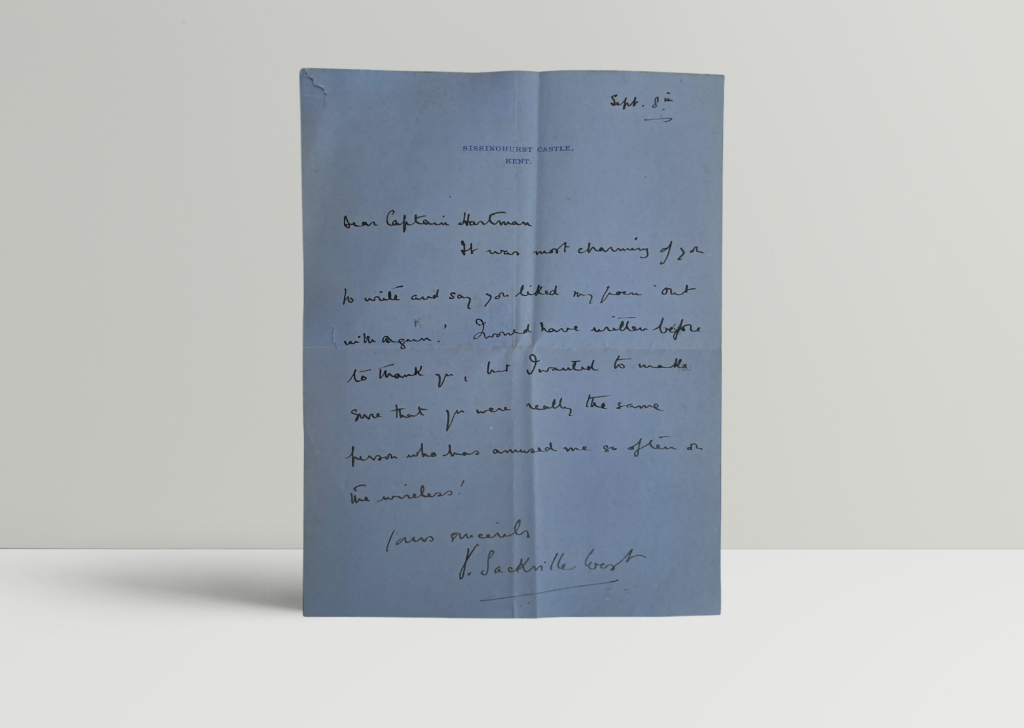 Sept. 8th
SISSINGHURST CASTLE,
KENT.
Dear Captain Hartman
It was most charming of you
to write and say you liked my poem 'out
with a gun.' I would have written before
to thank you, but I wanted to make
sure that you were really the same
person who has amused me so often on
the wireless!
Yours sincerely
V. Sackville West